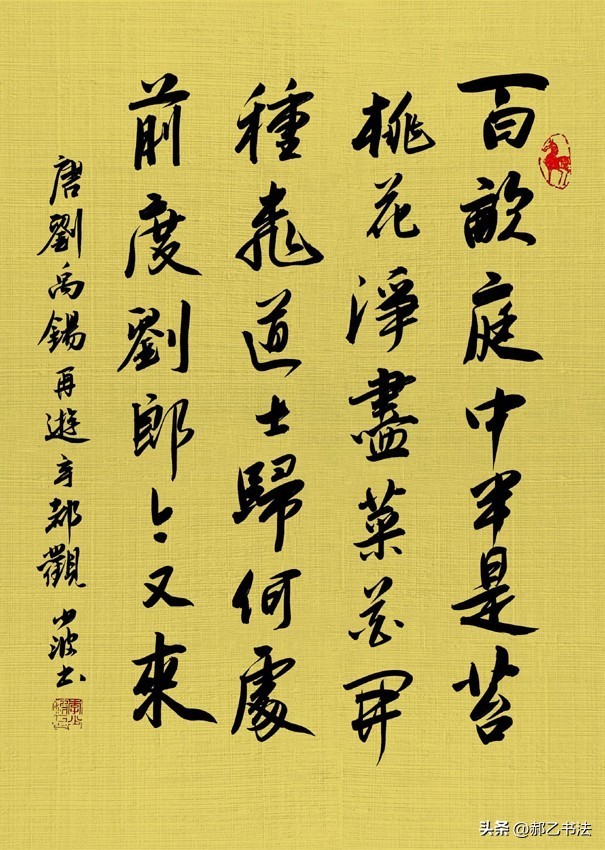 百畝庭中半是苔
桃花淨盡菜花開
種桃道士歸何處
前度劉郎今又來
唐劉禹錫再遊玄都觀 少波書
头条 @郝乙书法